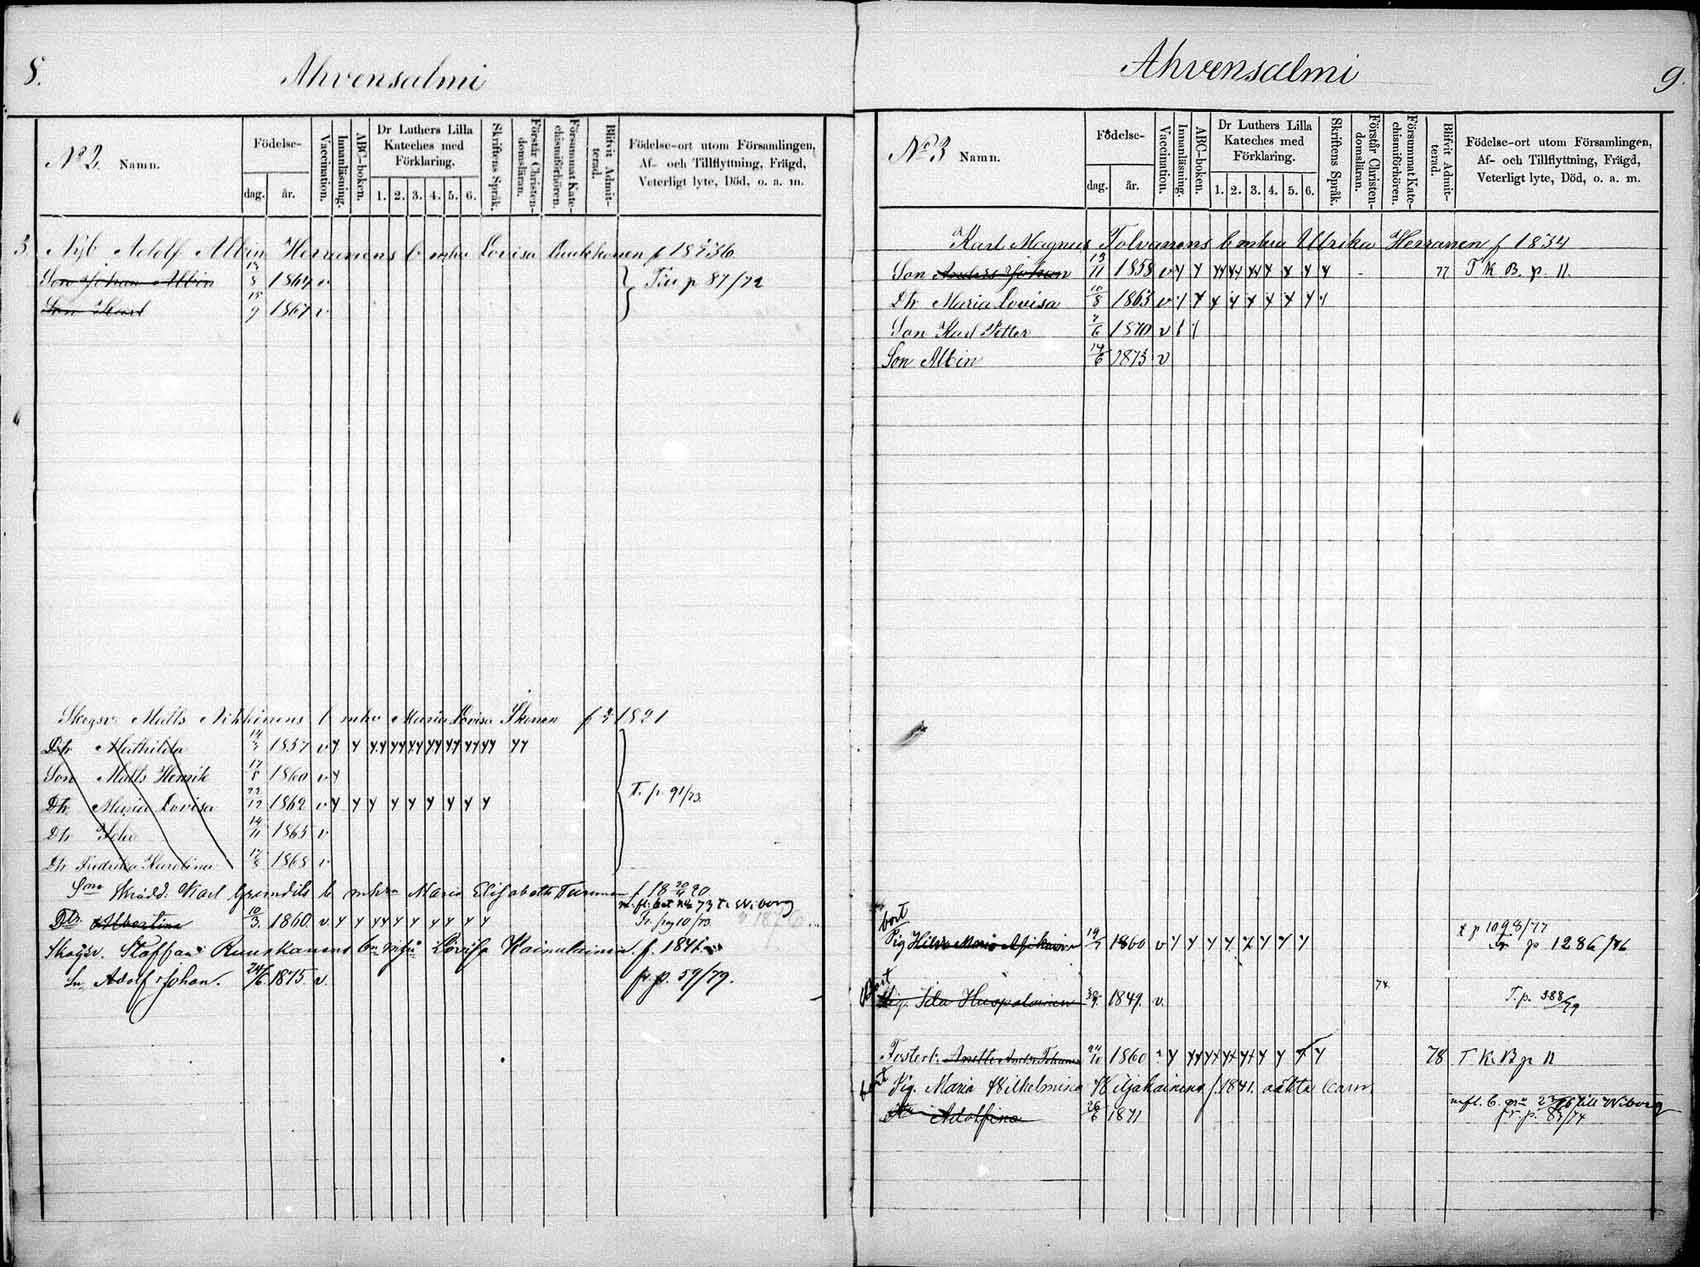 8.
Ahvensalmi
No 2. Namn.
Födelse-
dag. år.
Vaccination.
Innanläsning.
ABC-boken.
Dr Luthers Lilla Kateches med Förklaring.
1. 2. 3. 4. 5. 6.
Skriftens Språk.
Förstår Christendomsläran.
Försummat Katechismiförhören.
Blifvit Admitterad.
Födelse-ort utom Församlingen,
Af- och Tillflyttning, Frägd,
Veterligt lyte, Död, o. a. m.
3 Nyb Adolf Albin Herranens b m hu Lovisa f 1836
Son Johan Albin 13/8 1864 v Tur p 87/72
Son 15/9 1867 v
Skrgsv. Matts Nikkinens b m hu Maria Lovisa Ikonen f 1821
Dtr Mathilda 14/3 1857 v y y yy yy yy yy yy yy yy
Son Matts Henrik 17/8 1860 v y
Dtr Maria Lovisa 22/12 1862 v y y y y y y y y y T. p. 91/73.
Dtr 14/11 1865 v
Dtr Fredrika Karolina 17/3 1868 v
Skrädd. Karl b m hu Maria Elisabeth f 18 20
m. fl. bet No 73 t. Wiborg
Dtr. Albertina 10/3 1860. v. y y yy y y y y y Fr. pag 10/73.
Skrgsv. Staffans Lovisa Hainukainen f. 1841.
Sn. Adolf Johan. 24/6 1875. v. fr. p. 59/79.
Ahvensalmi
9.
No 3 Namn.
Födelse-
dag. år.
Vaccination.
Innanläsning.
ABC-boken.
Dr Luthers Lilla Kateches med Förklaring.
1. 2. 3. 4. 5. 6.
Skriftens Språk.
Förstår Christendomsläran.
Försummat Katechismiförhören.
Blifvit Admitterad.
Födelse-ort utom Församlingen,
Af- och Tillflyttning, Frägd,
Veterligt lyte, Död, o. a. m.
Karl Magnus Tolvanens b m hu Ulrika Herranen f 1834
Son Anders Johan 13/11 1858 v y y yy yy yy y y y y - 77 T K B. p. 11.
Dtr Maria Lovisa 10/8 1863 v y y y y y y y y y
Son Karl Petter 7/6 1870 v
Son Albin 14/6 1873 v
bort
Pig Hilda Maria 19/7 1860 v y y y y y y y y t p 1098/77
fr p 1286/76
Bort
Pig. Ida 1849. v. 74. T. p. 388/79
Fosterb. 24/10 1860 78 T K. B p 11
bort Pig. Maria Wilhelmina f. 1841. oäkta barn
m fl. b. till Wiborg
Adolfina 26/6 1871 fr. p. 83/74